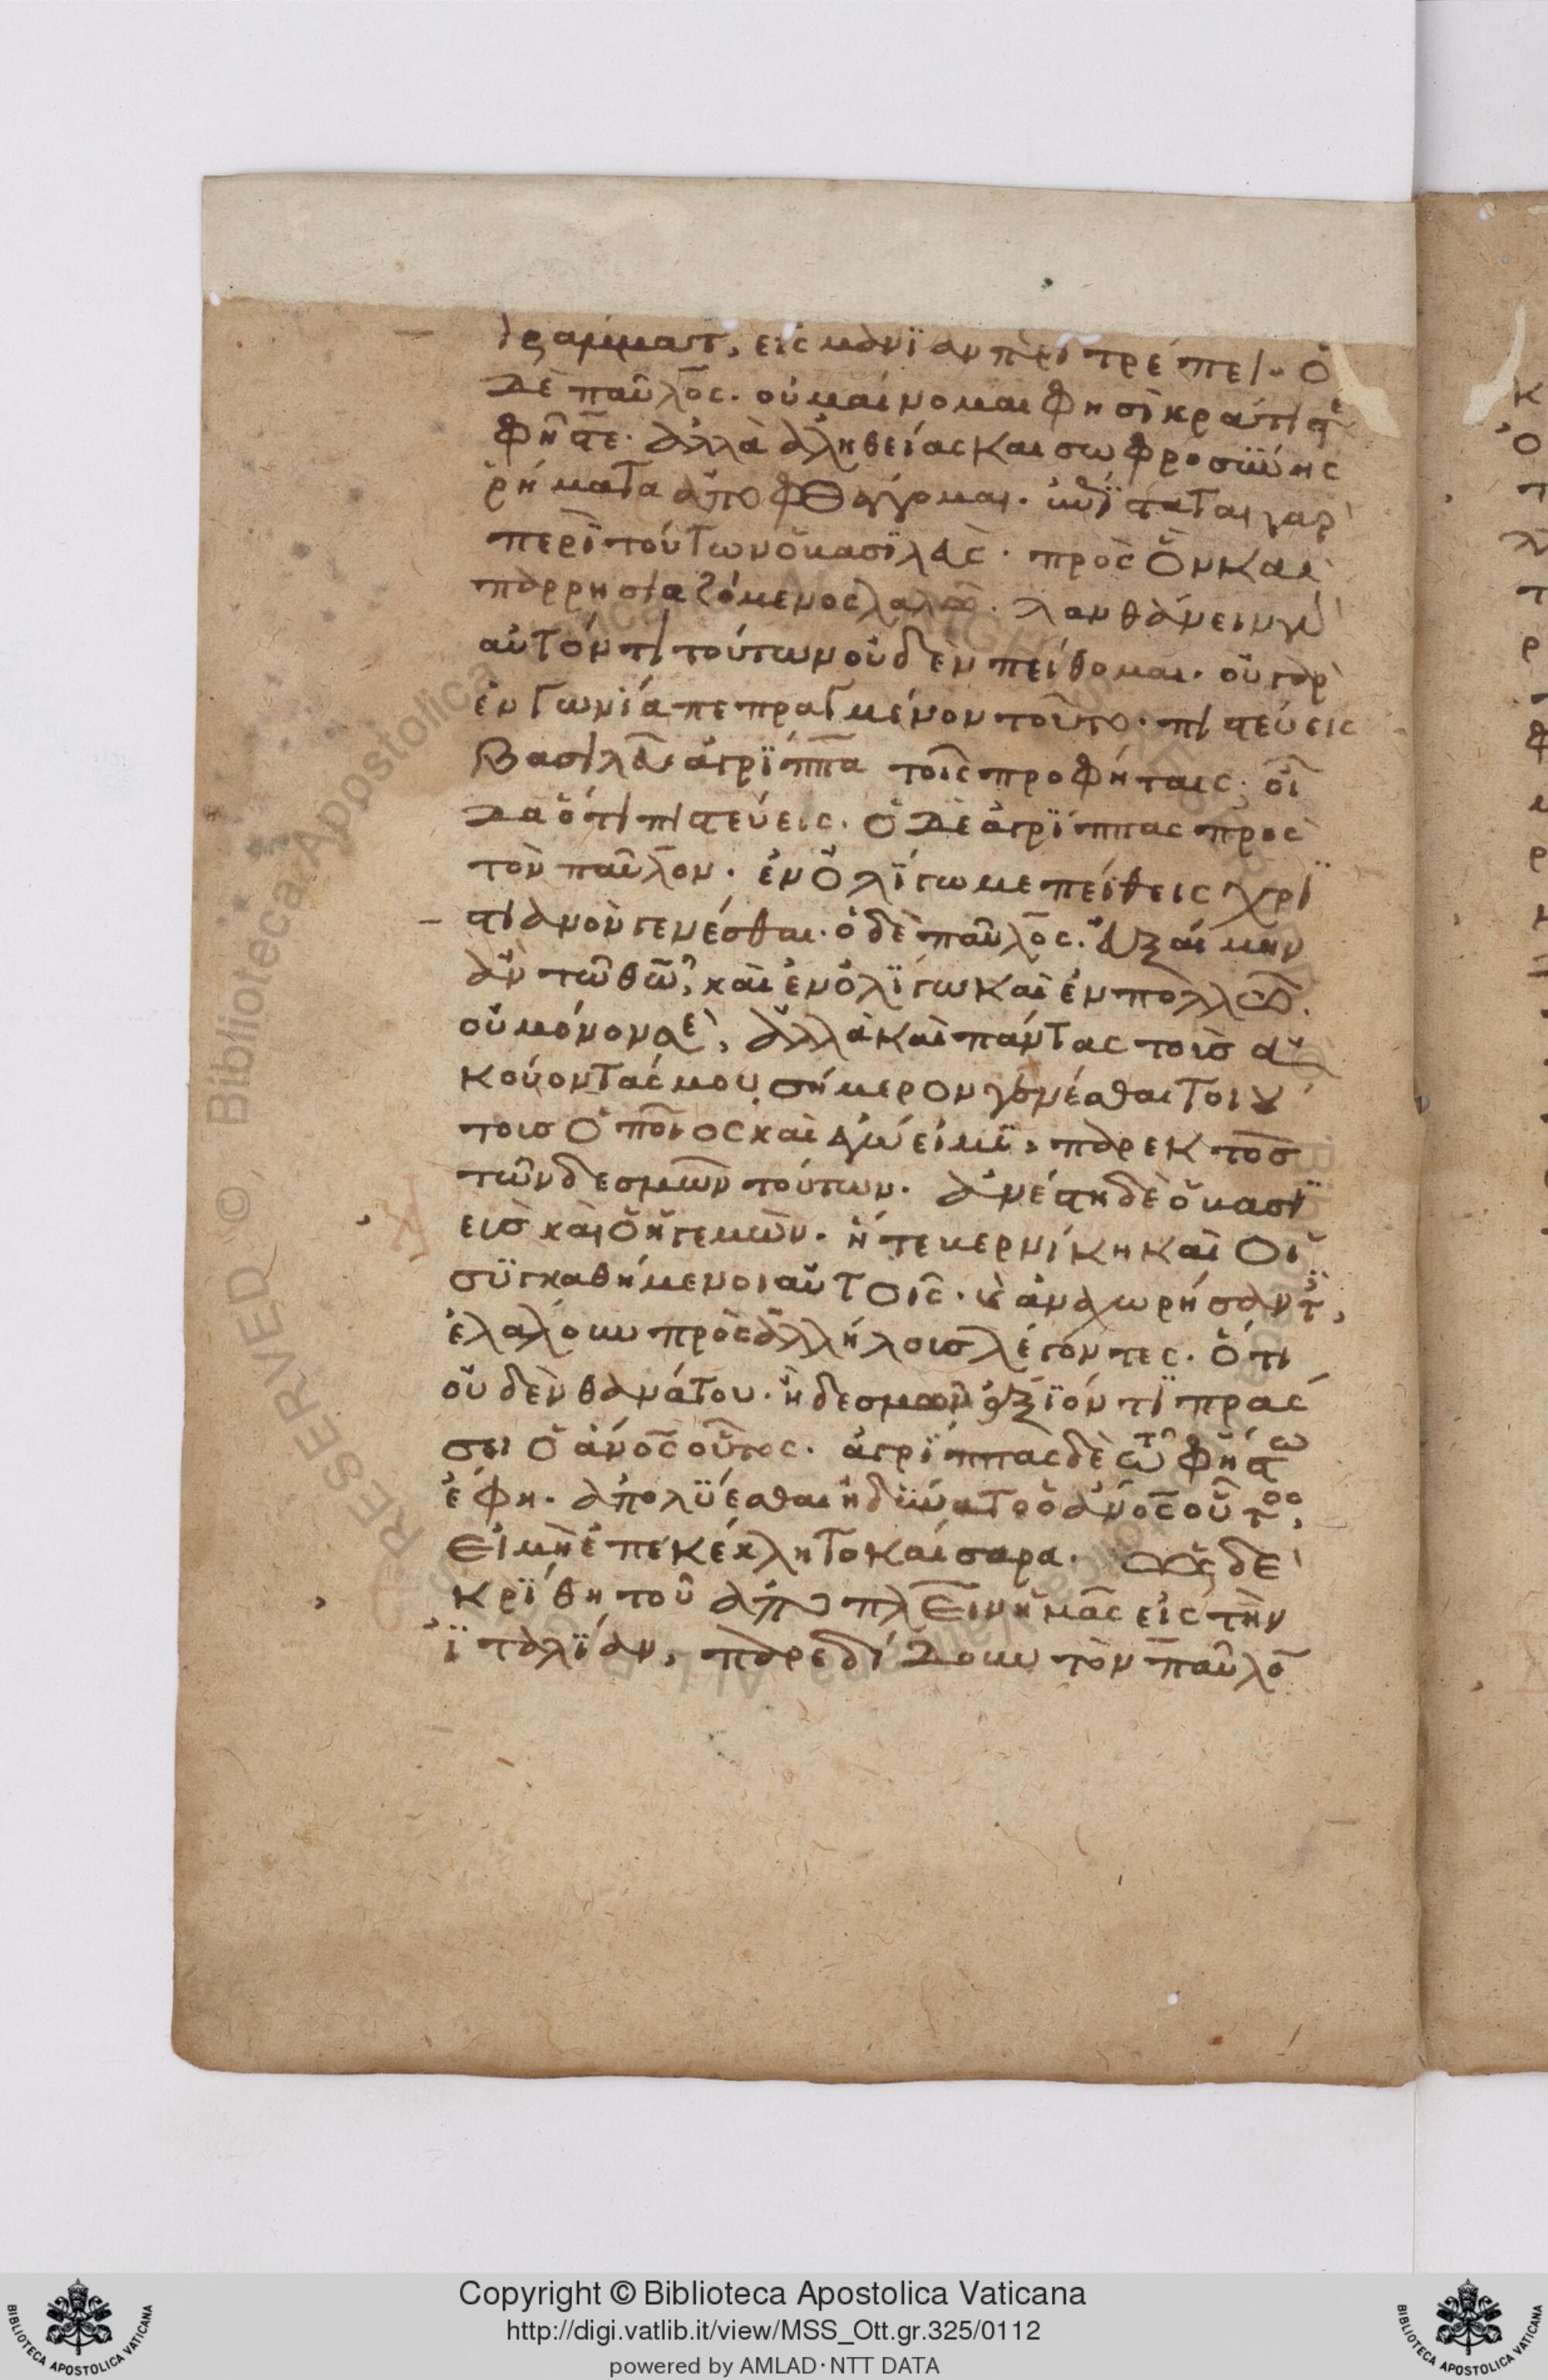 γραμματ, εἰς μανΐαν περι τρέπει. ὁ
δὲ παῦλος. οὐ μαίνομαι φησὶ κράτιστε
φῆστε. ἀλλὰ ἀληθείας και σωφροσϋνης
ῥήματα ἀποφθέγγομαι. ἐπΐσταται γαρ
περὶ τούτων ὁ βασϊλεὺς. πρὸς ὃν καὶ
παρρησιαζόμενος λαλῶ. λανθάνειν γὰρ
αὐτόν τι τούτων οὐδὲν πείθομαι. οὐ γὰρ
ἐν γωνία πεπραγμένον τοῦτο. πιστεύεις
βασιλεῦ ἀγρΐππα τοῖς προφήταις. οἶ
δα ὅτι πιστεύεις. ὁ δὲ ἀγρΐππας πρὸς
τὸν παῦλον. ἐν ὀλΐγω με πείθεις χρϊ
στιανὸν γενέσθαι. ὁ δὲ παῦλος. εὐξαίμην
ἂν τῶ θῶ, καὶ ἐν ὀλΐγω και ἐν πολλῶ.
οὐ μόνον σὲ, ἀλλὰ καὶ πάντας τοὺσ ἀ
κούοντάς μου σήμερον γενέσθαι τοιού
τουσ ὁποῖος καὶ ἐγώ εἰμϊ, παρεκτὸσ
τῶν δεσμῶν τούτων. ἀνέστη δὲ ὁ βασϊ
εὺσ καὶ ὁ ἡγεμὼν. ἥ τε βερνίκη καὶ οἱ
συγκαθήμενοι αὐτοῖς. καὶ ἀναχωρήσαντ,
ἐλάλουν πρὸς ἀλλήλουσ λέγόντες. ὅτι
οὐδὲν θανάτου. ἢ δεσμῶν ἄξϊόν τϊ πράσ
σει ὁ ἄνος οὗτος. ἀγρΐππας δὲ τῶ φήστω
ἔφη. ἀπολϋέσθαι ἠδϋνατο ὁ ἄνος οὗτος,
εἰ μὴ ἐπεκέκλητο καίσαρα. ὡς δὲ
κρΐθη τοῦ ἀποπλεῖν ἡμᾶς εἰς τὴν
ϊταλϊαν, παρεδίδουν τὸν παῦλο
Copyright © Biblioteca Apostolica Vaticana
http://digi.vatlib.it/view/MSS_Ott.gr.325/0112
powered by AMLAD·NTT DATA